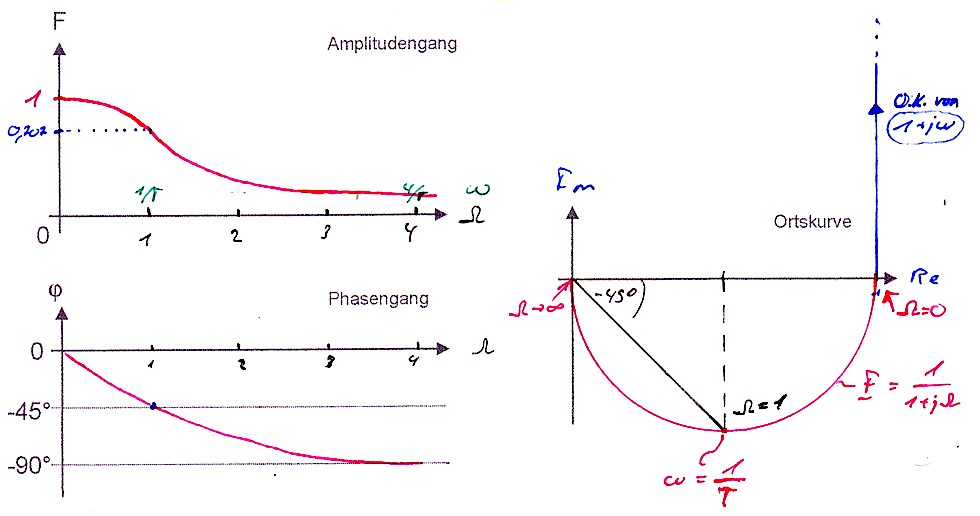 F
Amplitudengang
1
0,707
1/T
4/T
ω
0
1
2
3
4
Ω
φ
Phasengang
0
1
2
3
4
Ω
-45°
-90°
O.K. von
1+jω
Im
Ortskurve
Re
-45°
Ω→∞
Ω=0
F = 1/(1+jΩ)
Ω=1
ω = 1/T